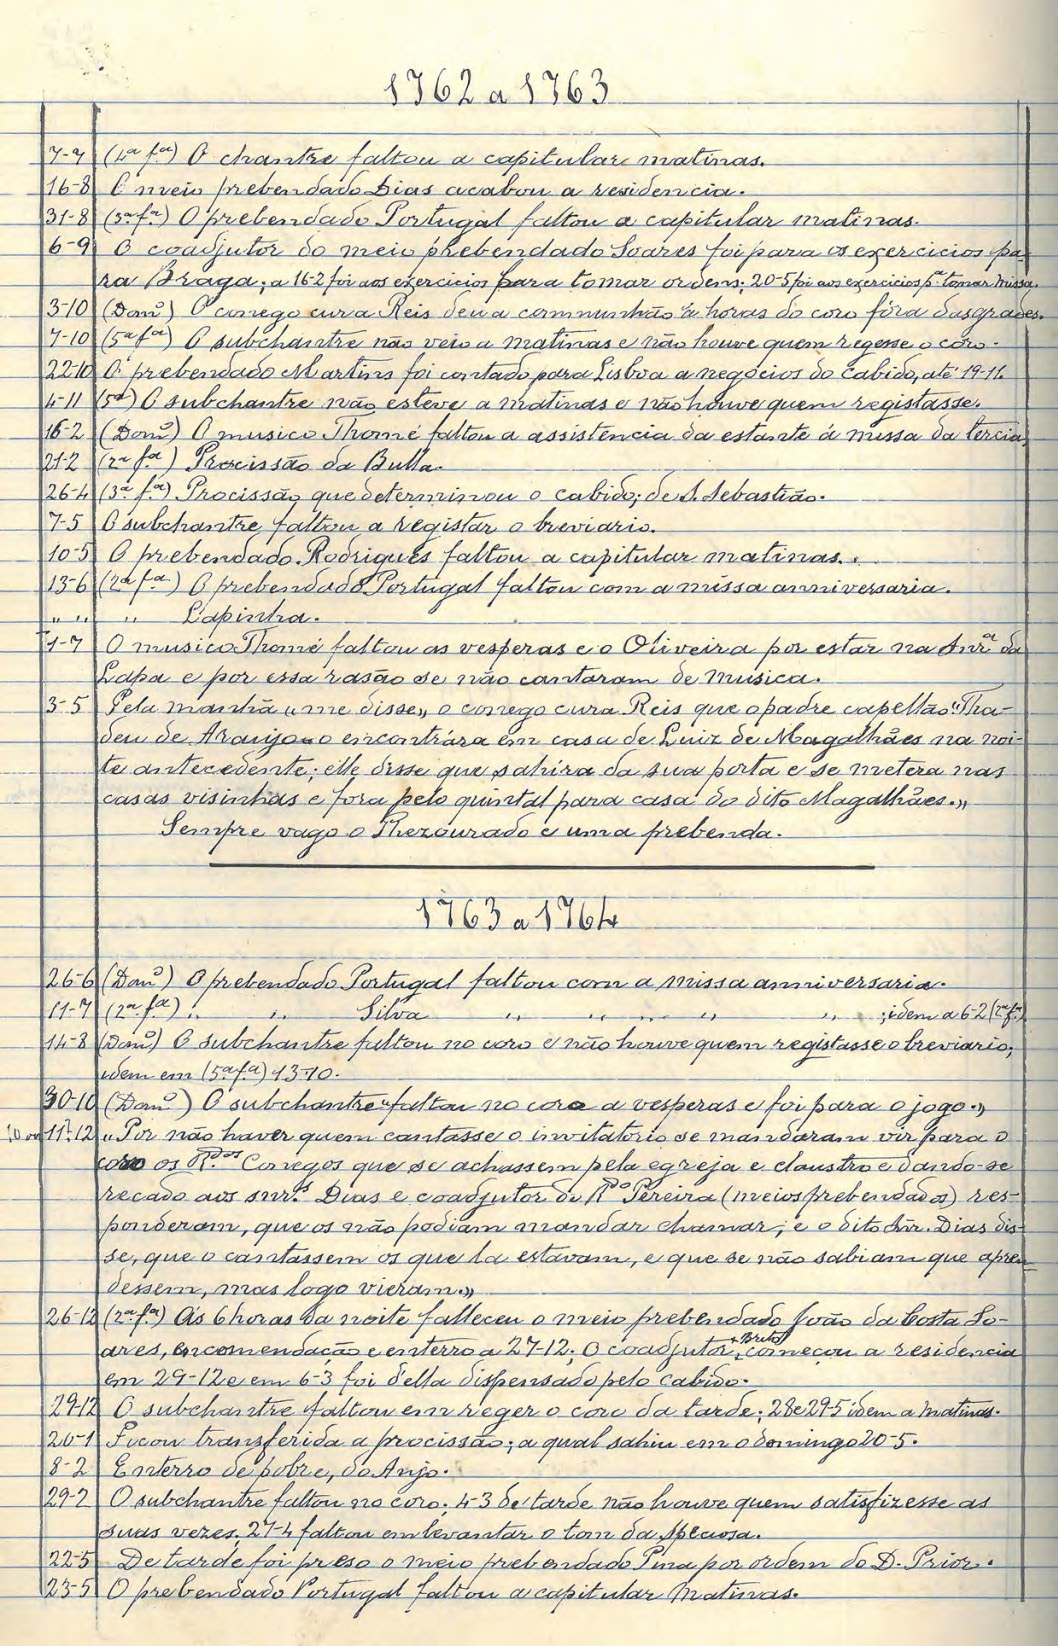 1762 a 1763
7-7 (4ª fª) O chantre faltou a capitular matinas.
16-8 O meio prebendado Dias acabou a residencia.
31-8 (3ª fª) O prebendado Portugal faltou a capitular matinas.
6-9 O coadjutor do meio prebendado Soares foi para os exercicios pa-
ra Braga; a 16-2 foi aos exercicios para tomar ordens; 20-5 foi aos exercicios pª tomar missa.
3-10 (Domº) O conego cura Reis deu a communhão ás horas do coro fóra das grades.
7-10 (5ª fª) O subchantre não veio a matinas e não houve quem regesse o coro.
22-10 O prebendado Martins foi contado para Lisboa a negocios do cabido, até 19-11.
4-11 (5ª) O subchantre não esteve a matinas e não houve quem registasse.
16-2 (Domº) O musico Thomé faltou a assistencia da estante á missa da tercia.
21-2 (2ª fª) Procissão da Bulla.
26-4 (3ª fª) Procissão que determinou o cabido; de S. Sebastião.
7-5 O subchantre faltou a registar o breviario.
10-5 O prebendado Rodrigues faltou a capitular matinas.
13-6 (2ª fª) O prebendado Portugal faltou com a missa anniversaria.
" " " Lapinha.
1-7 O musico Thomé faltou as vesperas e o Oliveira por estar na Snrª da
Lapa e por essa rasão se não cantaram de musica.
3-5 Pela manhã "me disse" o conego cura Reis que o padre capellão "Tha-
deu de Araujo o encontrára em casa de Luiz de Magalhães na noi-
te antecedente; elle disse que sahira da sua porta e se metera nas
casas visinhas e fora pelo quintal para casa do dito Magalhães."
Sempre vago o Thezourado e uma prebenda.
1763 a 1764
26-6 (Domº) O prebendado Portugal faltou com a missa anniversaria.
11-7 (2ª fª) " " Silva " " " " " ; idem a 6-2 (2ª fª)
14-8 (Domº) O subchantre faltou no coro e não houve quem registasse o breviario;
idem em (5ª fª) 13-10.
30-10 (Domº) O subchantre "faltou no coro a vesperas e foi para o jogo."
10 ou 11-12 "Por não haver quem cantasse o invitatorio se mandaram vir para o
coro os R.dos Conegos que se achassem pela egreja e claustro e dando-se
recado aos snr.s Dias e coadjutor do Rdo Pereira (meios prebendados) res-
ponderam, que os não podiam mandar chamar; e o dito Snr. Dias dis-
se, que o cantassem os que lá estavam, e que se não sabiam que apren-
dessem, mas logo vieram."
26-12 (2ª fª) Ás 6 horas da noite falleceu o meio prebendado João da Costa So-
ares, encomendação e enterro a 27-12; O coadjutor, Brito, começou a residencia
em 29-12 e em 6-3 foi d'ella dispensado pelo cabido.
29-12 O subchantre faltou em reger o coro da tarde; 28 e 29-5 idem a matinas.
20-1 Ficou transferida a procissão; a qual sahiu em o domingo 20-5.
8-2 Enterro de pobre, do Anjo.
29-2 O subchantre faltou no coro; 4-3 de tarde não houve quem satisfizesse as
suas vezes; 27-4 faltou em levantar o tom da Speciosa.
22-5 De tarde foi preso o meio prebendado Pina por ordem do D. Prior.
23-5 O prebendado Portugal faltou a capitular matinas.